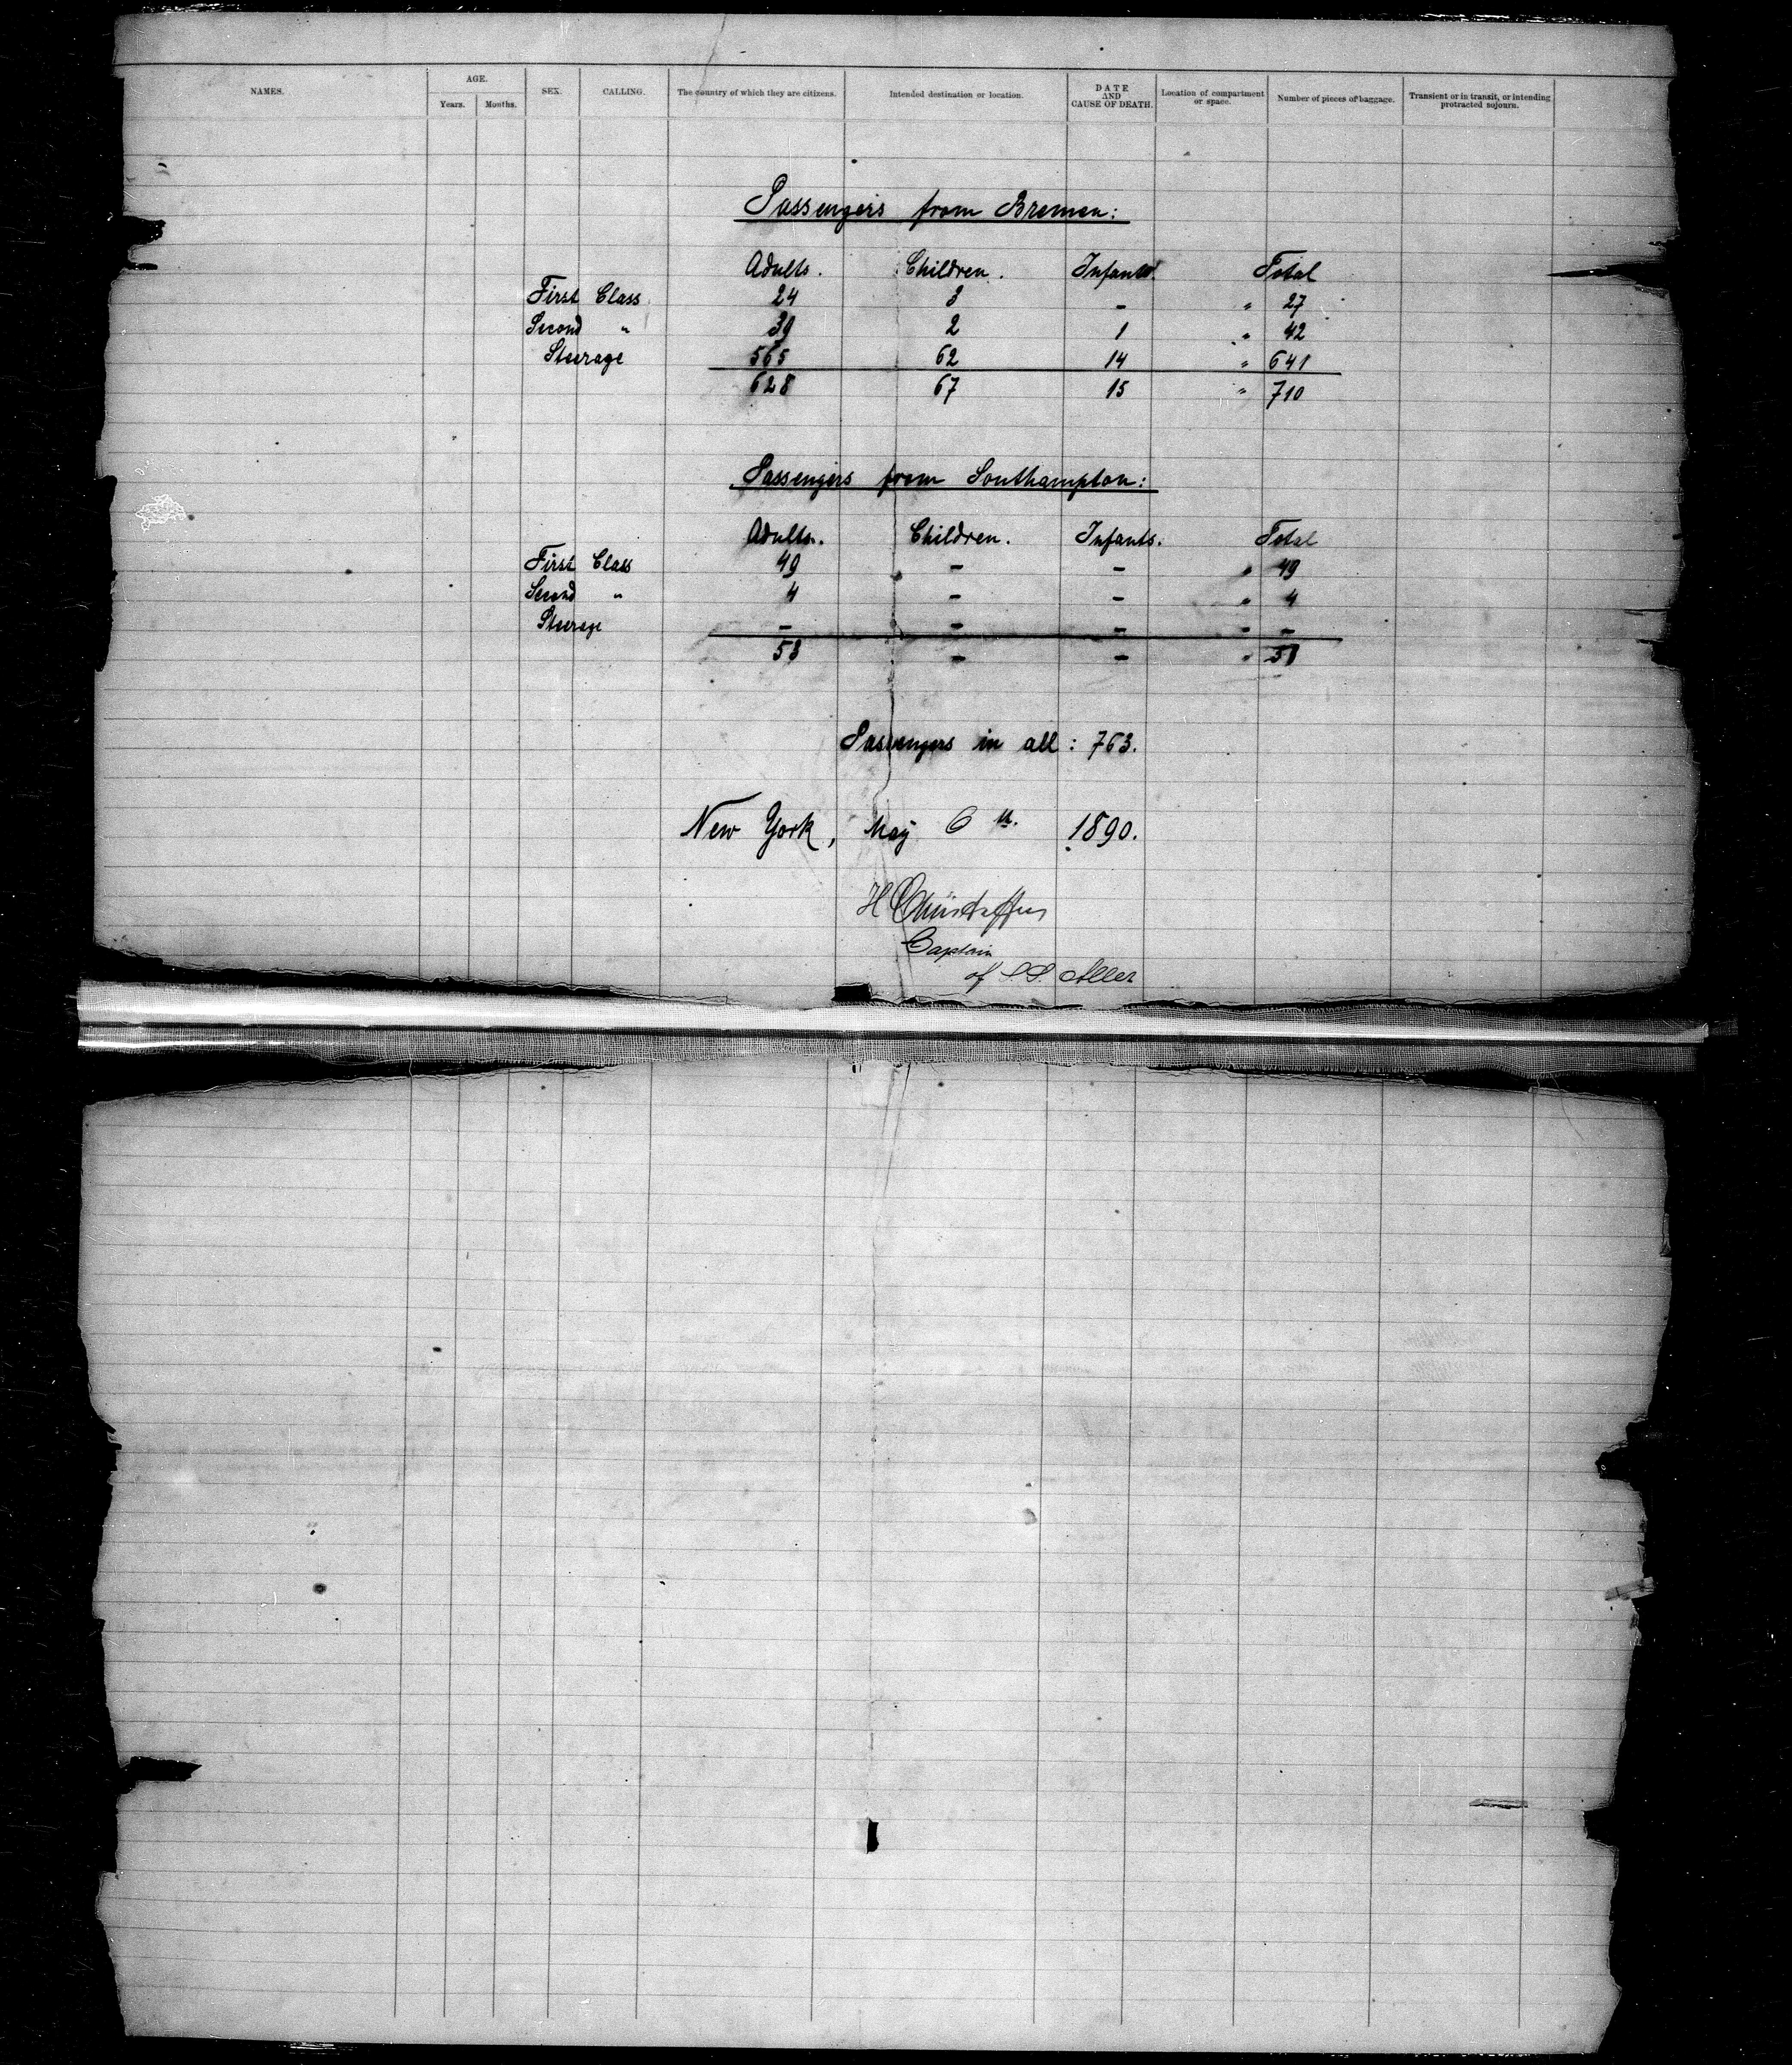 NAMES. AGE. Years. Months. SEX. CALLING. The country of which they are citizens. Intended destination or location. DATE AND CAUSE OF DEATH. Location of compartment or space. Number of pieces of baggage. Transient or in transit, or intending protracted sojourn.
Passengers from Bremen:
Adults. Children. Infants. Total
First Class 24 3 - " 27
Second " 39 2 1 " 42
Steerage 565 62 14 " 641
628 67 15 " 710
Passengers from Southampton:
Adults. Children. Infants. Total
First Class 49 - - " 49
Second " 4 - - " 4
Steerage - - - - -
53 - - " 53
Passengers in all: 763.
New York, May 6th. 1890.
H Christoffers
Captain
of S.S. Aller